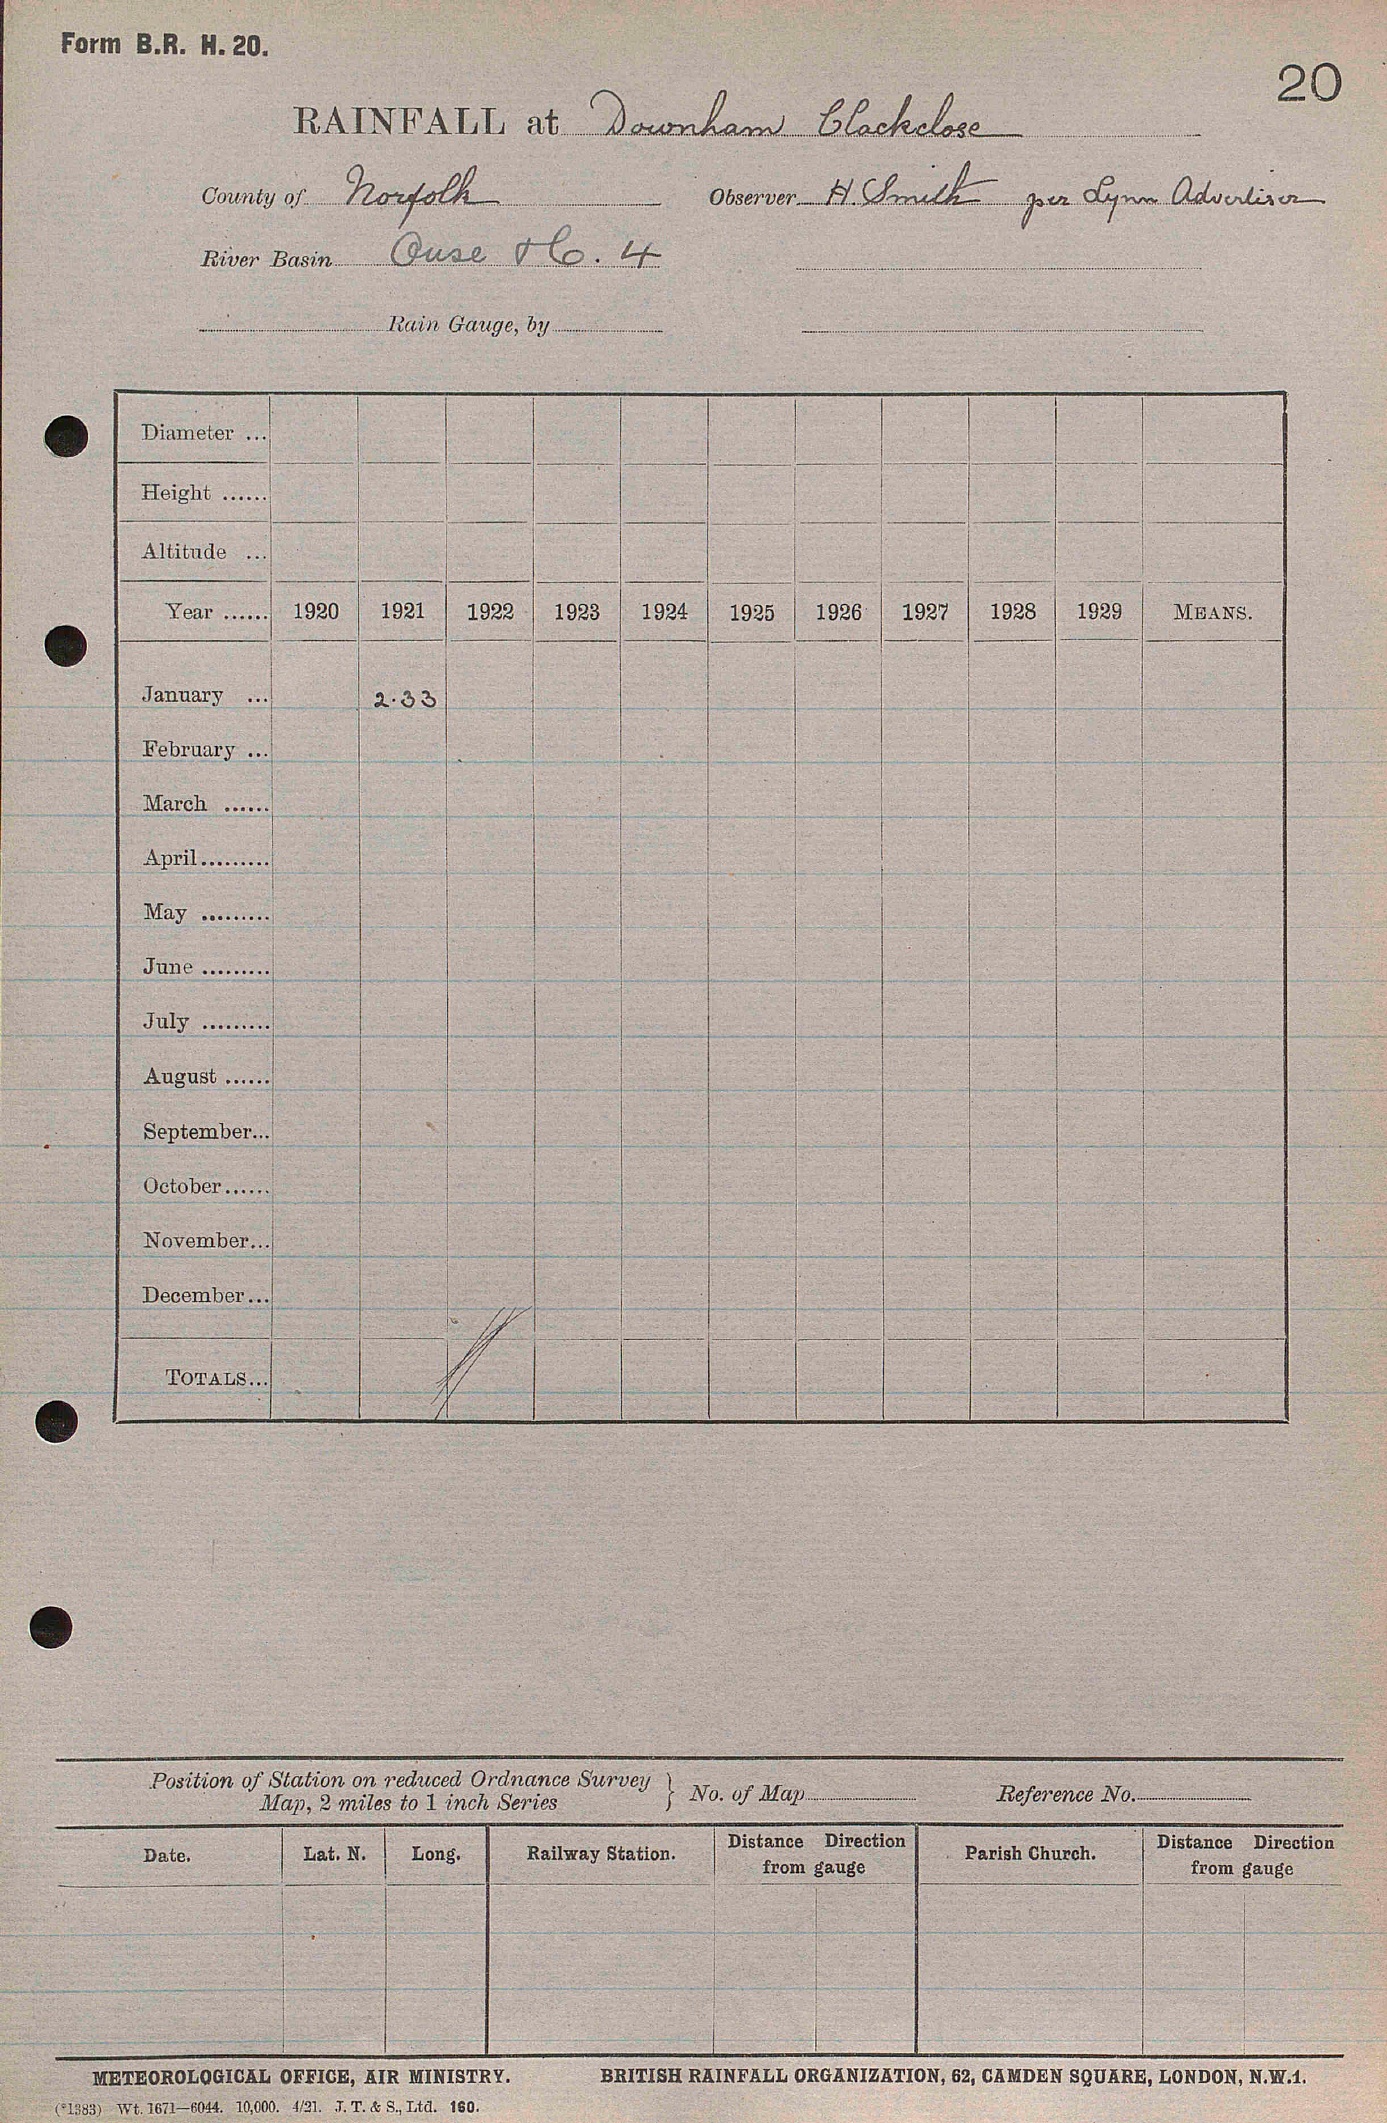 Form B.R. H. 20.
20
RAINFALL at Downham Clackclose
County of Norfolk Observer H. Smith per Lynn Advertiser
River Basin Ouse 4
Rain Gauge, by
Diameter ...
Height ......
Altitude ...
Year ...... 1920 1921 1922 1923 1924 1925 1926 1927 1928 1929 MEANS.
January ... 2.33
February ...
March ......
April.........
May .........
June .........
July .........
August ......
September...
October......
November...
December...
TOTALS...
Position of Station on reduced Ordnance Survey
Map, 2 miles to 1 inch Series } No. of Map Reference No.
Date. Lat. N. Long. Railway Station. Distance Direction from gauge Parish Church. Distance Direction from gauge
METEOROLOGICAL OFFICE, AIR MINISTRY. BRITISH RAINFALL ORGANIZATION, 62, CAMDEN SQUARE, LONDON, N.W.1.
(*1383) Wt. 1671—6044. 10,000. 4/21. J. T. & S., Ltd. 160.